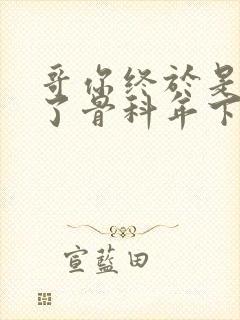 哥你终於是
了骨科年下
宣蓝田